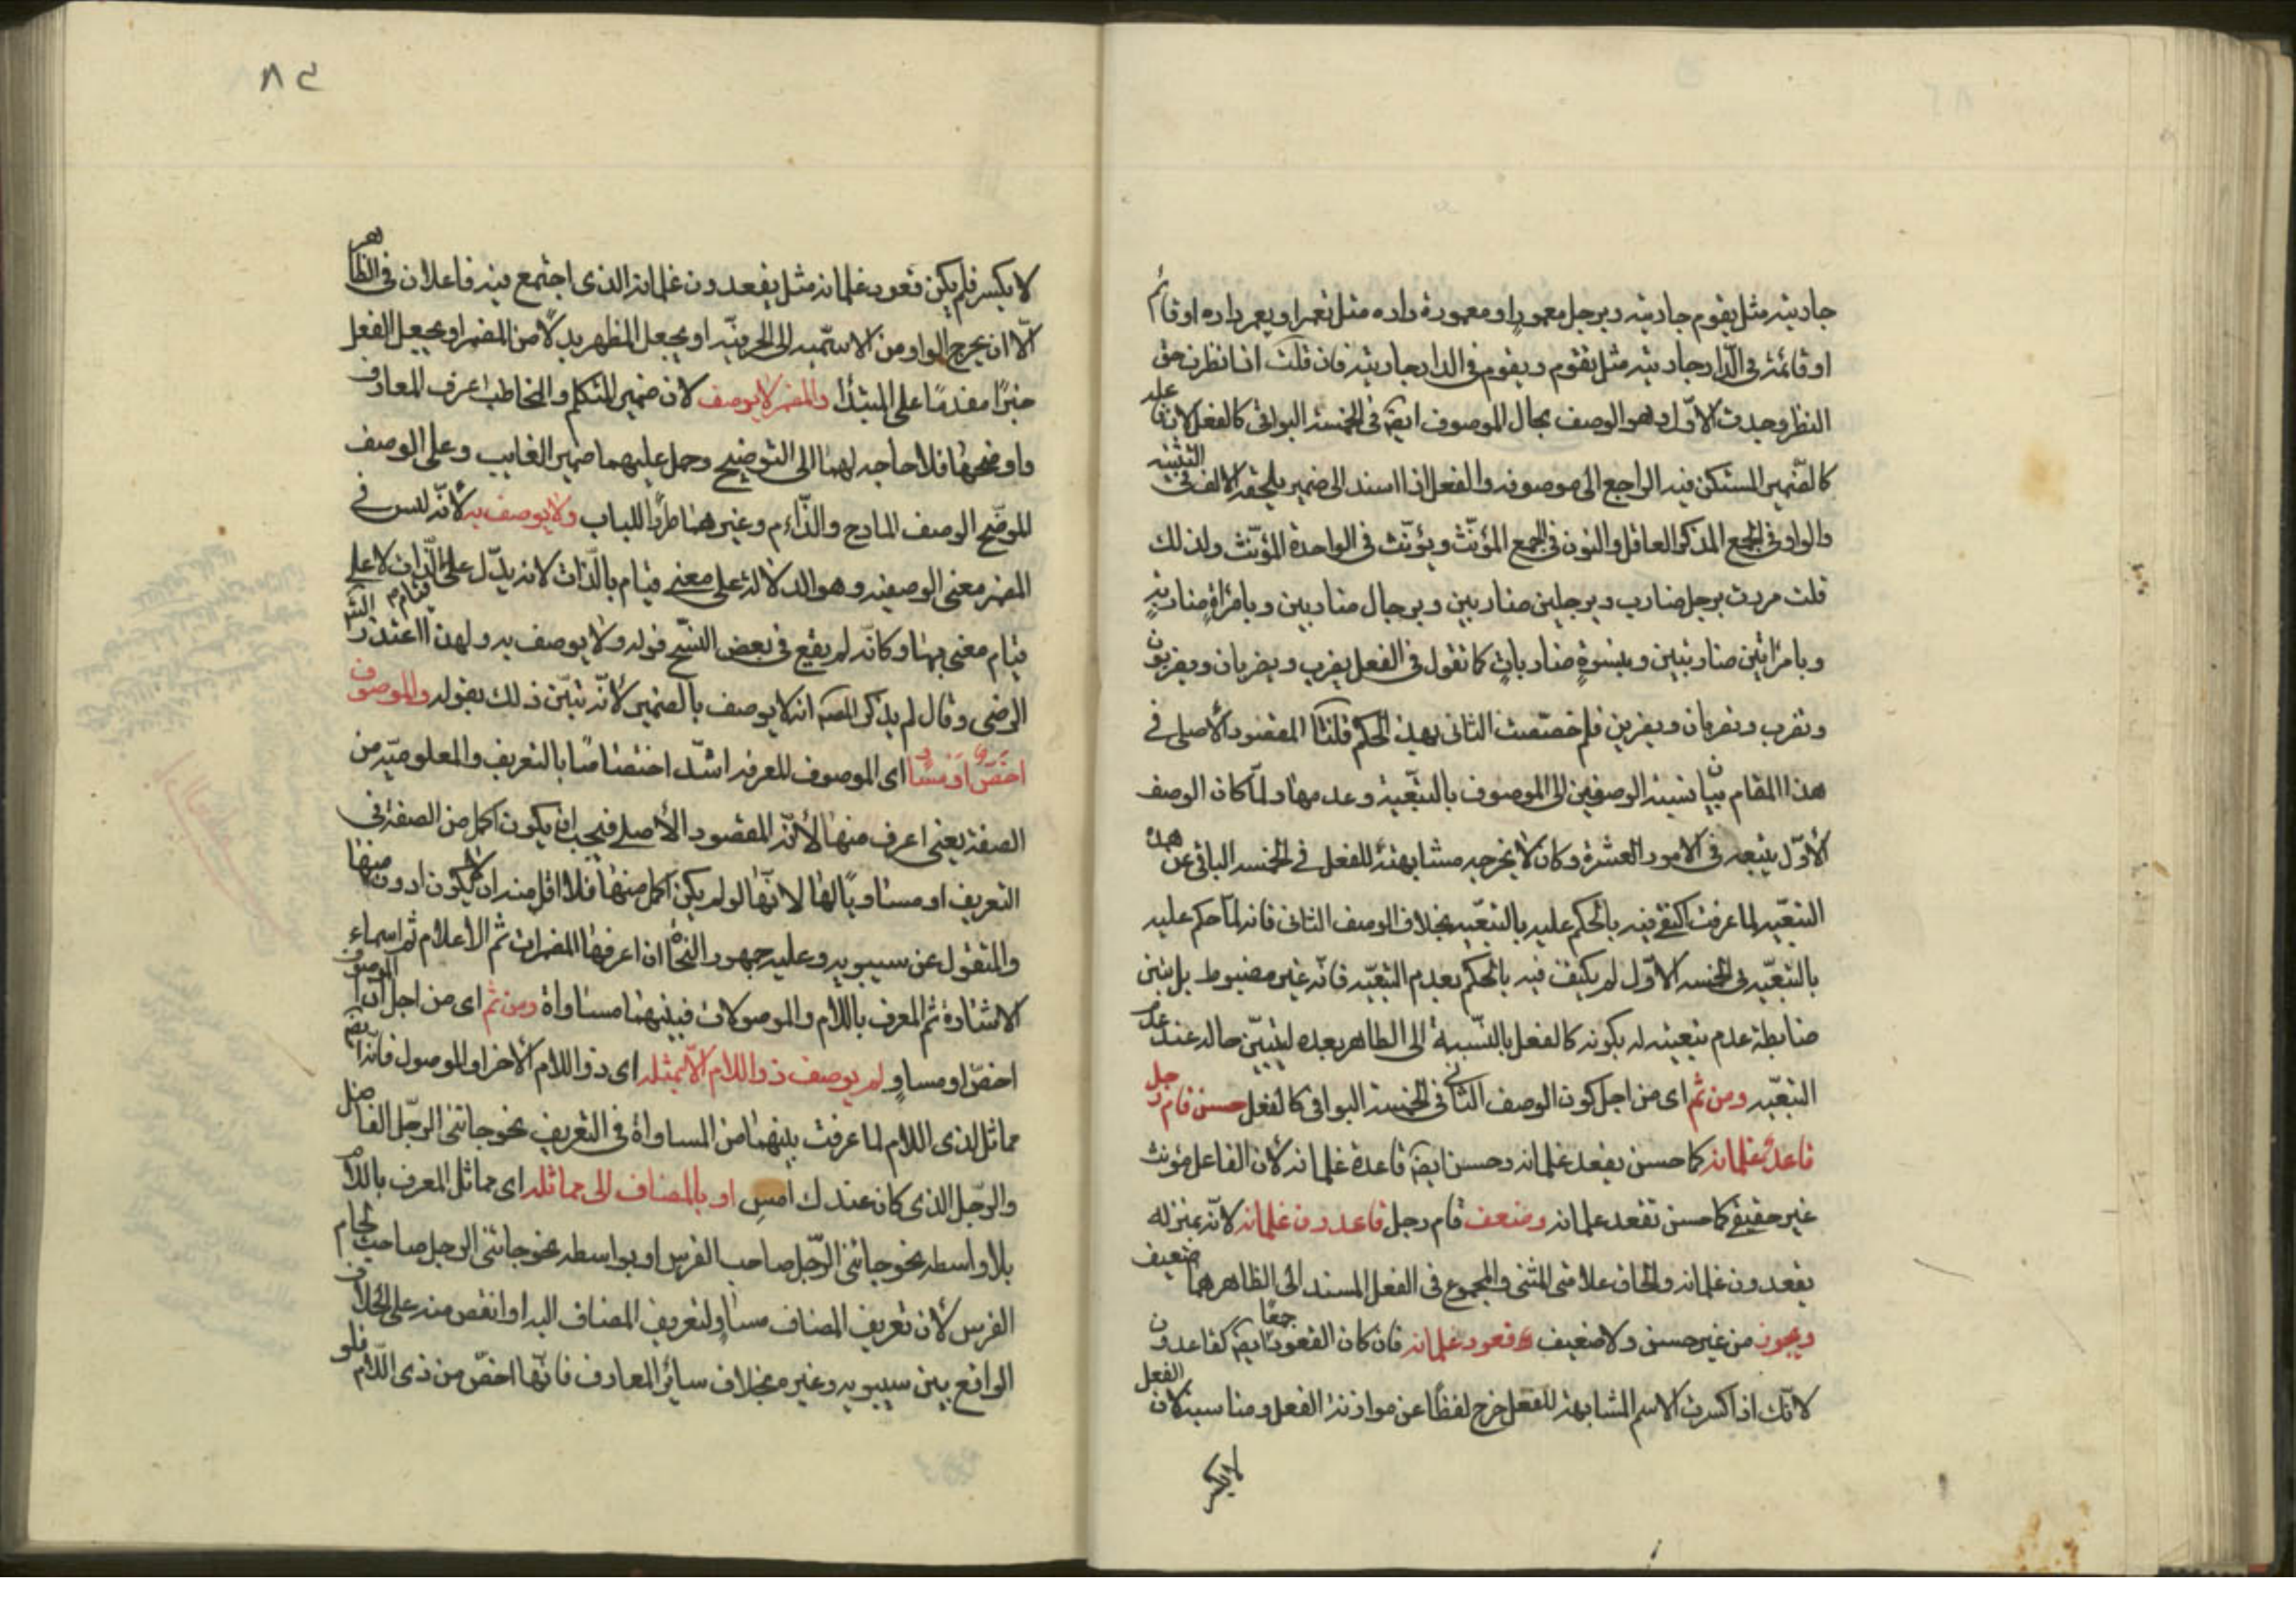 جاريته مثل يقوم جاريته وبرجل معمور او معمورة داره مثل تعمر او يعمر داره او قائم
او قائمة فى الدار جاريته مثل تقوم ويقوم فى الدار جاريته فان قلت اذا نظرت حق
النظر وجدت الاول وهو الوصف بحال الموصوف ايضا فى الخمسة البواقى كالفعل لان فاعله
كالضمير المستكن فيه الراجع الى موصوفه والفعل اذا اسند الى ضمير يلحقه الالف فى التثنية
والواو فى الجمع المذكر العاقل والنون فى الجمع المؤنث ويؤنث فى الواحدة المؤنث ولذلك
قلت مررت برجل ضارب وبرجلين ضاربين وبرجال ضاربين وبامرأة ضاربة
وبامرأتين ضاربتين وبنسوة ضاربات كما تقول فى الفعل يضرب ويضربان ويضربون
وتضرب وتضربان ويضربن فلم خصصت الثانى بهذا الحكم قلنا المقصود الاصلى فى
هذا المقام بيان نسبة الوصفين الى الموصوف بالتبعية وعدمها ولما كان الوصف
الاول يتبعه فى الامور العشرة وكان لا يخرجه مشابهته للفعل فى الخمسة الباقى عن هذه
التبعية لما عرفت اكتفى فيه بالحكم عليه بالتبعية بخلاف الوصف الثانى فانه لما حكم عليه
بالتبعية فى الخمسة الاول لم يكتف فيه بالحكم بعدم التبعية فانه غير مضبوط بل بين
ضابطة عدم تبعيته له بكونه كالفعل بالنسبة الى الظاهر بعده ليتبين حاله عند عدم
التبعية ومن ثم اى من اجل كون الوصف الثانى فى الخمسة البواقى كالفعل حسن قام رجل
قاعد غلمانه كما حسن يقعد غلمانه وحسن ايضا قاعدة غلمانه لان الفاعل مؤنث
غير حقيقى كما حسن تقعد غلمانه وضعف قام رجل قاعدون غلمانه لانه بمنزلة
يقعدون غلمانه والحاق علامتى المثنى والمجموع فى الفعل المسند الى الظاهر هما ضعيف
ويجوز من غير حسن ولا ضعيف قعود غلمانه فان كان القعود جمعا ايضا كقاعدون
لانك اذا كسرت الاسم المشابهة للفعل خرج لفظا عن موازنة الفعل ومناسبته لان الفعل
لا يكسر
٨٢
لا يكسر فلم يكن قعود غلمانه مثل يقعدون غلمانه الذى اجتمع فيه فاعلان فى الظاهر
الا ان يخرج الواو من الاسمية الى الحرفية او يجعل المظهر بدلا من المضمر او يجعل الفعل
خبرا مقدما على المبتدأ والمضمر لا يوصف لان ضمير المتكلم والمخاطب اعرف المعارف
واوضحها فلا حاجة لهما الى التوضيح وحمل عليهما ضمير الغايب وعلى الوصف
الموضح الوصف المادح والذام وغيرهما طردا للباب ولا يوصف به لانه ليس فى
المضمر معنى الوصفية وهو الدلالة على معنى قيام بالذات لانه يدل على الذات لا على
قيام معنى بها وكانه لم يقع فى بعض النسخ قوله ولا يوصف به ولهذا اعتذر الشارح
الرضى وقال لم يذكر المصنف انه لا يوصف بالضمير لانه تبين ذلك بقوله والموصوف
اخص او مساو اى الموصوف المعرفة اشد اختصاصا بالتعريف والمعلومية من
الصفة يعنى اعرف منها لانه المقصود الاصلى فيجب ان يكون اكمل من الصفة فى
التعريف او مساويا لها لانها لو لم يكن اكمل منها فلا اقل منه ان لا يكون ادون منها
والمنقول عن سيبويه وعليه جمهور النحاة ان اعرفها المضمرات ثم الاعلام ثم اسماء
الاشارة ثم المعرف باللام والموصولات فبينهما مساواة ومن ثم اى من اجل ان الموصوف
اخص او مساو لم يوصف ذو اللام الا بمثله اى ذو اللام الاخر او الموصول فانه ايضا
مماثل لذى اللام لما عرفت بينهما من المساواة فى التعريف نحو جائنى الرجل الفاضل
والرجل الذى كان عندك امس او بالمضاف الى مماثله اى مماثل المعرف باللام
بلا واسطه نحو جائنى الرجل صاحب الفرس او بواسطه نحو جائنى الرجل صاحب لجام
الفرس لان تعريف المضاف مساو لتعريف المضاف اليه او انقص منه على الخلاف
الواقع بين سيبويه وغيره بخلاف سائر المعارف فانها اخص من ذى اللام فلو